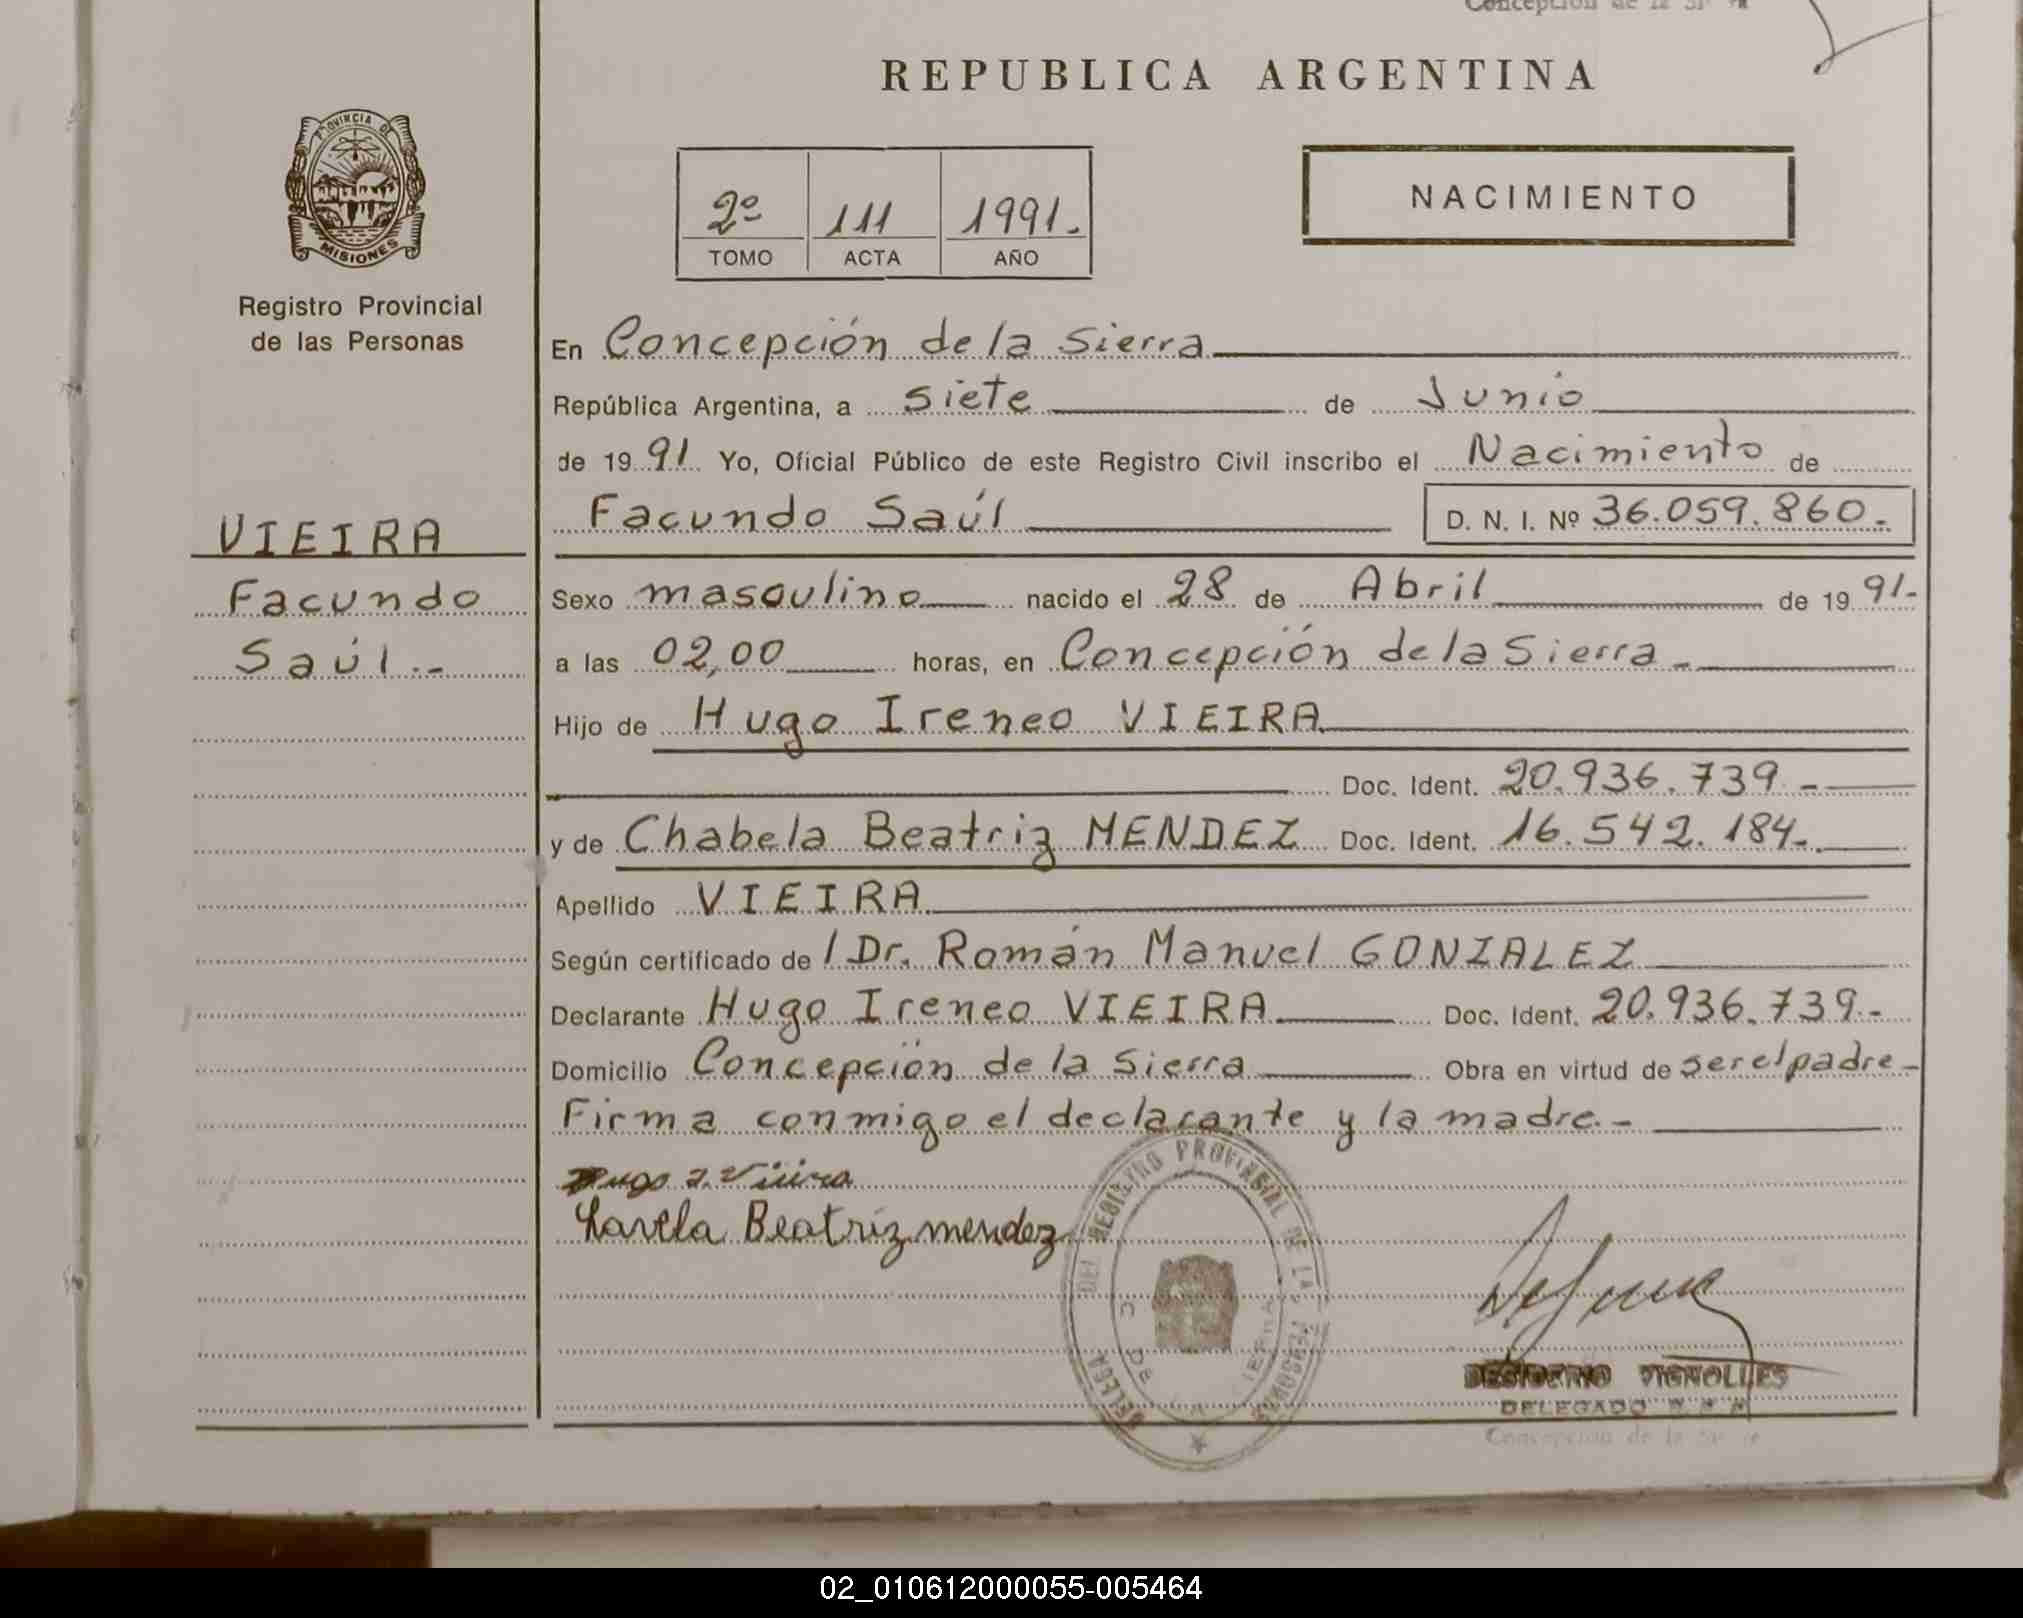 Concepción de la Si
REPUBLICA ARGENTINA
PROVINCIA DE
MISIONES
Registro Provincial
de las Personas
2º 111 1991.
TOMO ACTA AÑO
NACIMIENTO
En Concepción de la Sierra
República Argentina, a siete de Junio
de 1991 Yo, Oficial Público de este Registro Civil inscribo el Nacimiento de
Facundo Saúl D. N. I. Nº 36.059.860.-
VIEIRA
Facundo
Saúl.-
Sexo masculino nacido el 28 de Abril de 1991.-
a las 02,00 horas, en Concepción de la Sierra.-
Hijo de Hugo Ireneo VIEIRA
Doc. Ident. 20.936.739.-
y de Chabela Beatriz MENDEZ Doc. Ident. 16.542.184.-
Apellido VIEIRA
Según certificado de l Dr. Román Manuel GONZALEZ
Declarante Hugo Ireneo VIEIRA Doc. Ident. 20.936.739.-
Domicilio Concepción de la Sierra Obra en virtud de ser el padre-
Firma conmigo el declarante y la madre.-
Hugo I. Vieira
Beatriz mendez
DEL REGISTRO PROVINCIAL DE LA PERSONAS
DESIDERIO VIGNOLLES
DELEGADO
Concepción de la
02_010612000055-005464